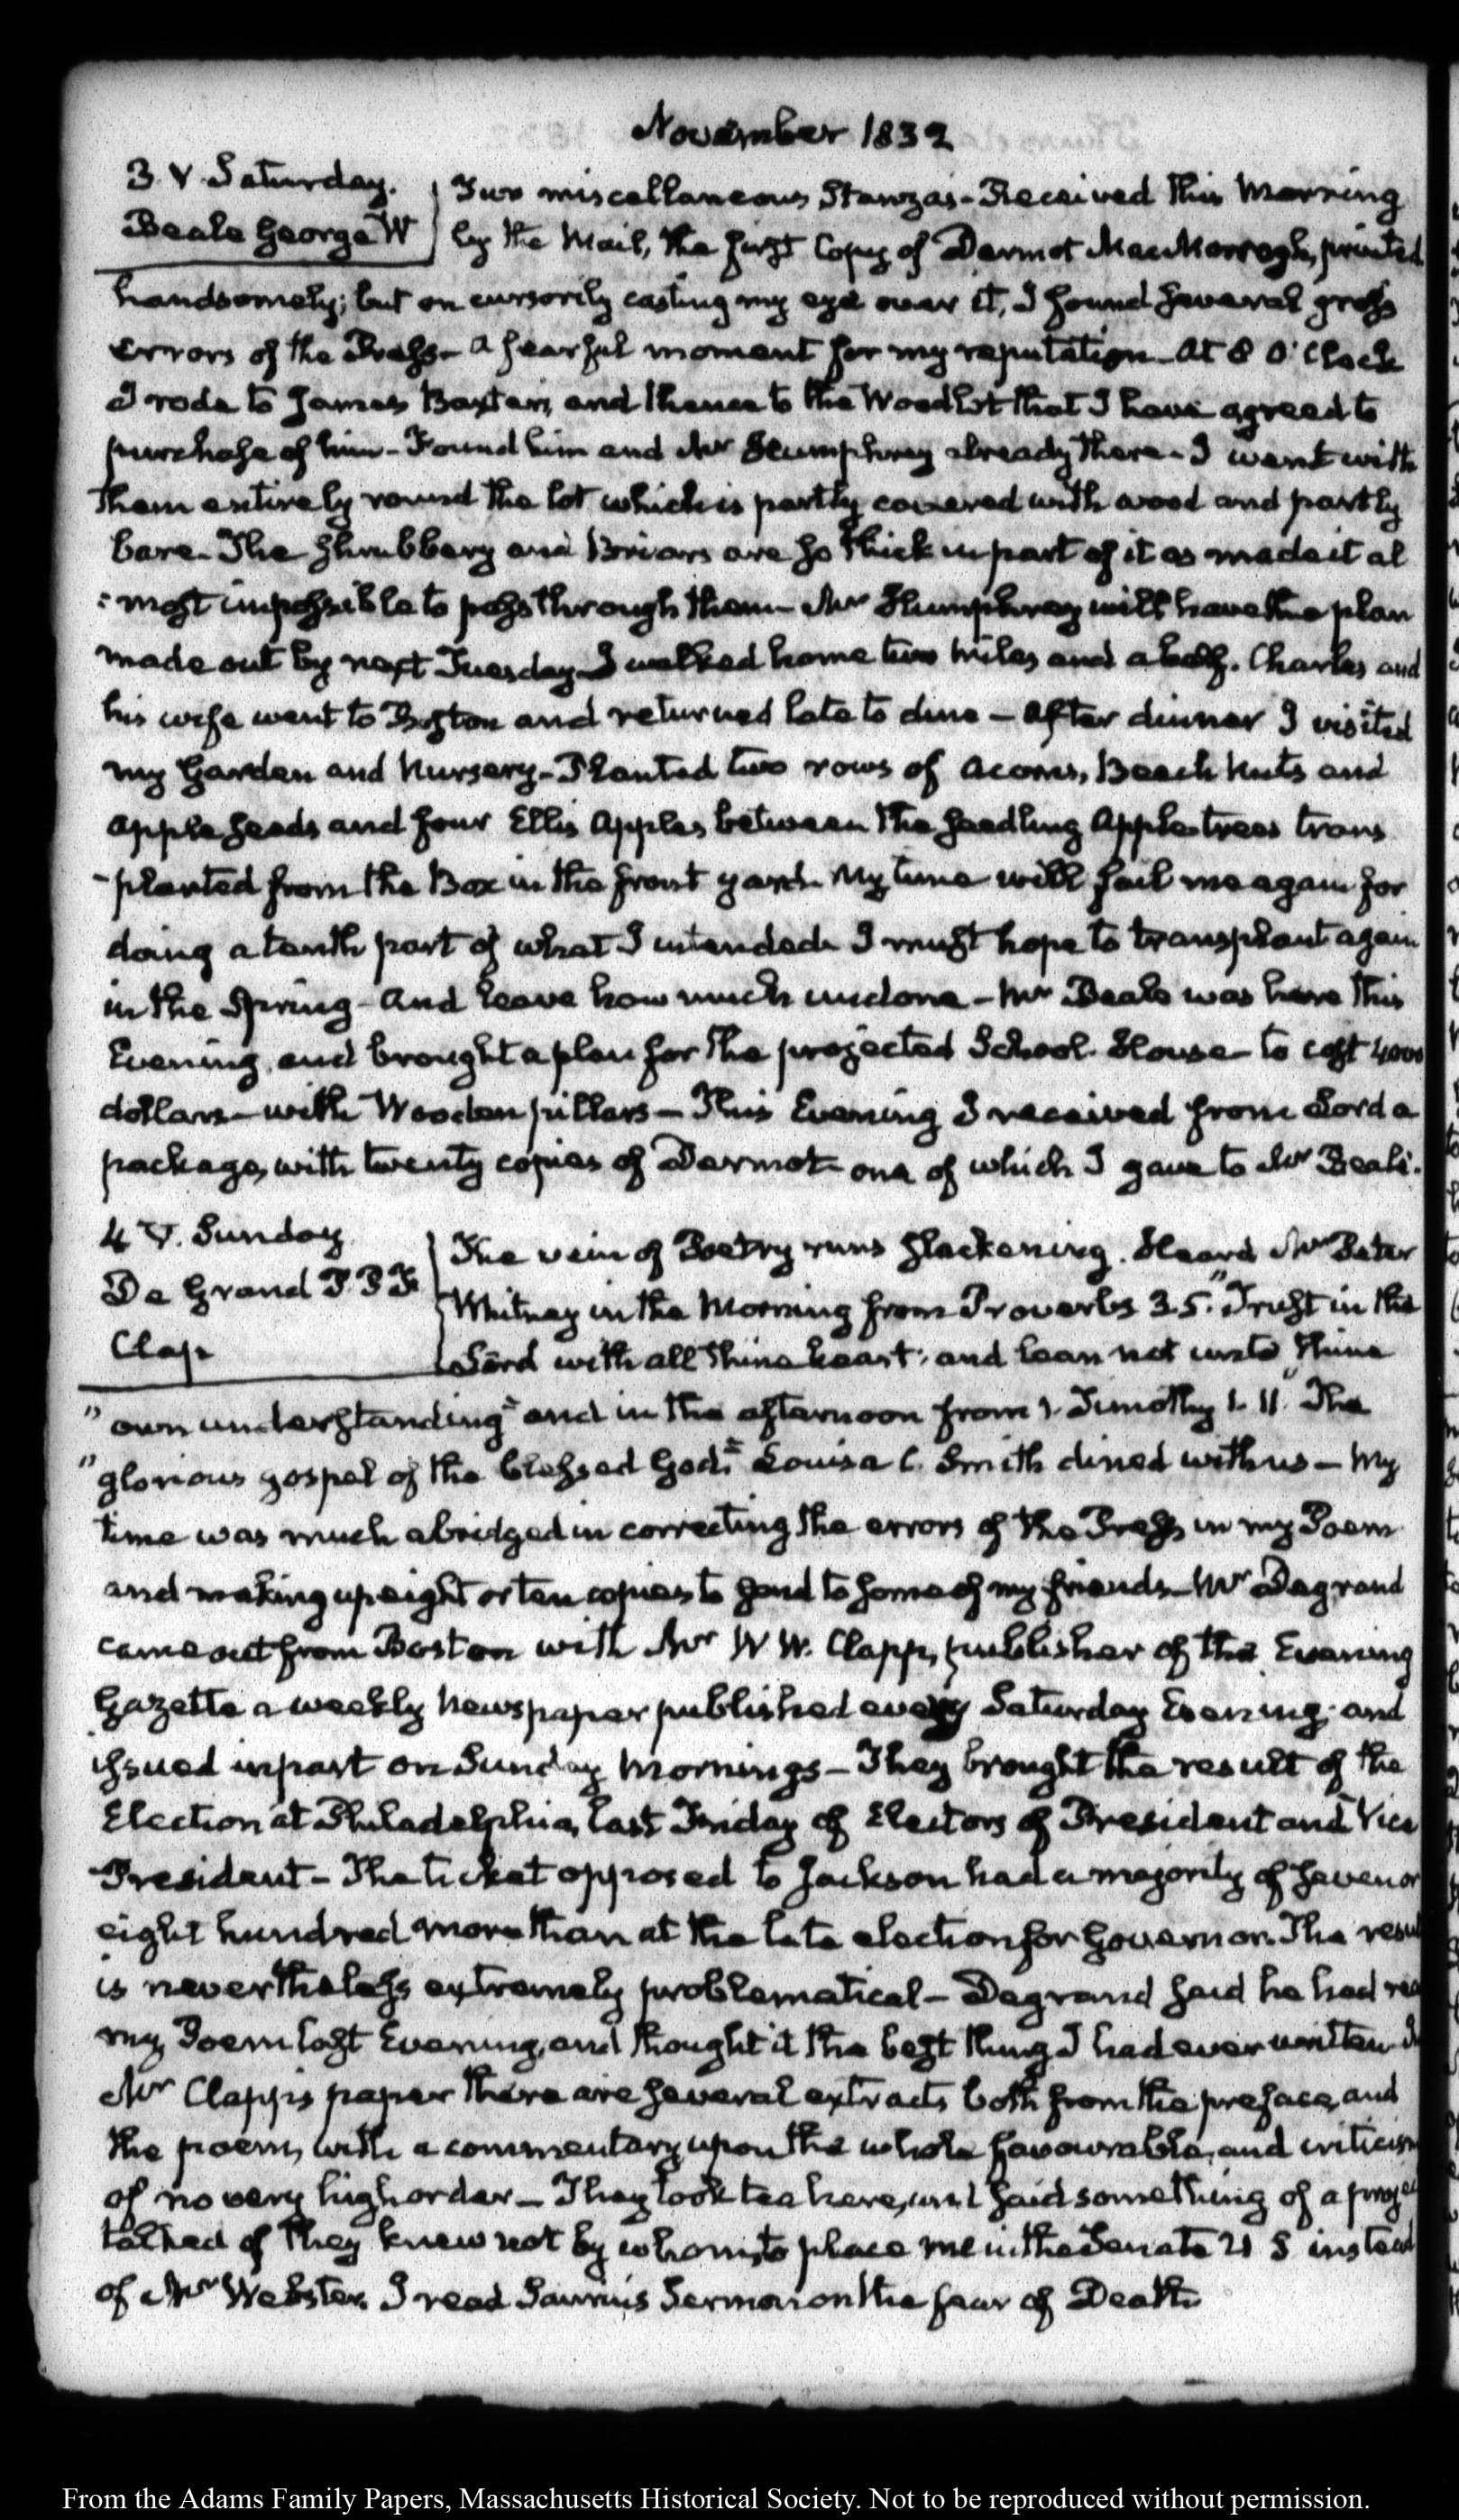 November 1832
3. V. Saturday.
Beale George W
Two miscellaneous Stanzas - Received this Morning
by the Mail, the first Copy of Dermot MacMorrogh, printed
handsomely; but on cursorily casting my eye over it, I found several gross
errors of the Press - a fearful moment for my reputation - At 8 O'Clock
I rode to James Baxter's, and thence to the Wood lot that I have agreed to
purchase of him - Found him and Mr Humphrey already there - I went with
them entirely round the lot which is partly covered with wood and partly
bare. The shrubbery and Briars are so thick in part of it as made it al
:most impossible to pass through them - Mr Humphrey will have the plan
made out by next Tuesday - I walked home two miles and a half. Charles and
his wife went to Boston and returned late to dine - After dinner I visited
my Garden and Nursery - Planted two rows of Acorns, Beach Nuts and
Apple seeds and four Ellis Apples between the seedling Apple trees trans
-planted from the Box in the front yard. My time will fail me again for
doing a tenth part of what I intended. I must hope to transplant again
in the Spring - And leave how much undone - Mr Beale was here this
Evening, and brought a plan for the projected School House - to cost 4000
dollars - with Wooden pillars - This Evening I received from Lord a
package, with twenty copies of Dermot - one of which I gave to Mr Beale.
4 V. Sunday
De Grand P. P. F.
Clap
The vein of Poetry runs slackening. Heard Mr Peter
Whitney in the Morning from Proverbs 3. 5. "Trust in the
Lord with all thine heart; and lean not unto thine
"own understanding" and in the afternoon from 1. Timothy 1. 11 "The
"glorious gospel of the blessed God." Louisa C. Smith dined with us - My
time was much abridged in correcting the errors of the Press in my Poem
and making up eight or ten copies to send to some of my friends - Mr Degrand
came out from Boston with Mr W W. Clapp, publisher of the Evening
Gazette a weekly Newspaper published every Saturday Evening; and
issued in part on Sunday Mornings - They brought the result of the
Election at Philadelphia, last Friday of Electors of President and Vice
President - The ticket opposed to Jackson had a majority of seven or
eight hundred more than at the late election for Governor. The resu
is nevertheless extremely problematical - Degrand said he had rea
my Poem last Evening, and thought it the best thing I had ever written. In
Mr Clapp's paper there are several extracts both from the preface, and
the poem, with a commentary upon the whole favourable, and criticism
of no very high order - They took tea here, and said something of a project
talked of they knew not by whom, to place me in the Senate U S instead
of Mr Webster. I read Saurin's Sermon on the fear of Death.
From the Adams Family Papers, Massachusetts Historical Society. Not to be reproduced without permission.